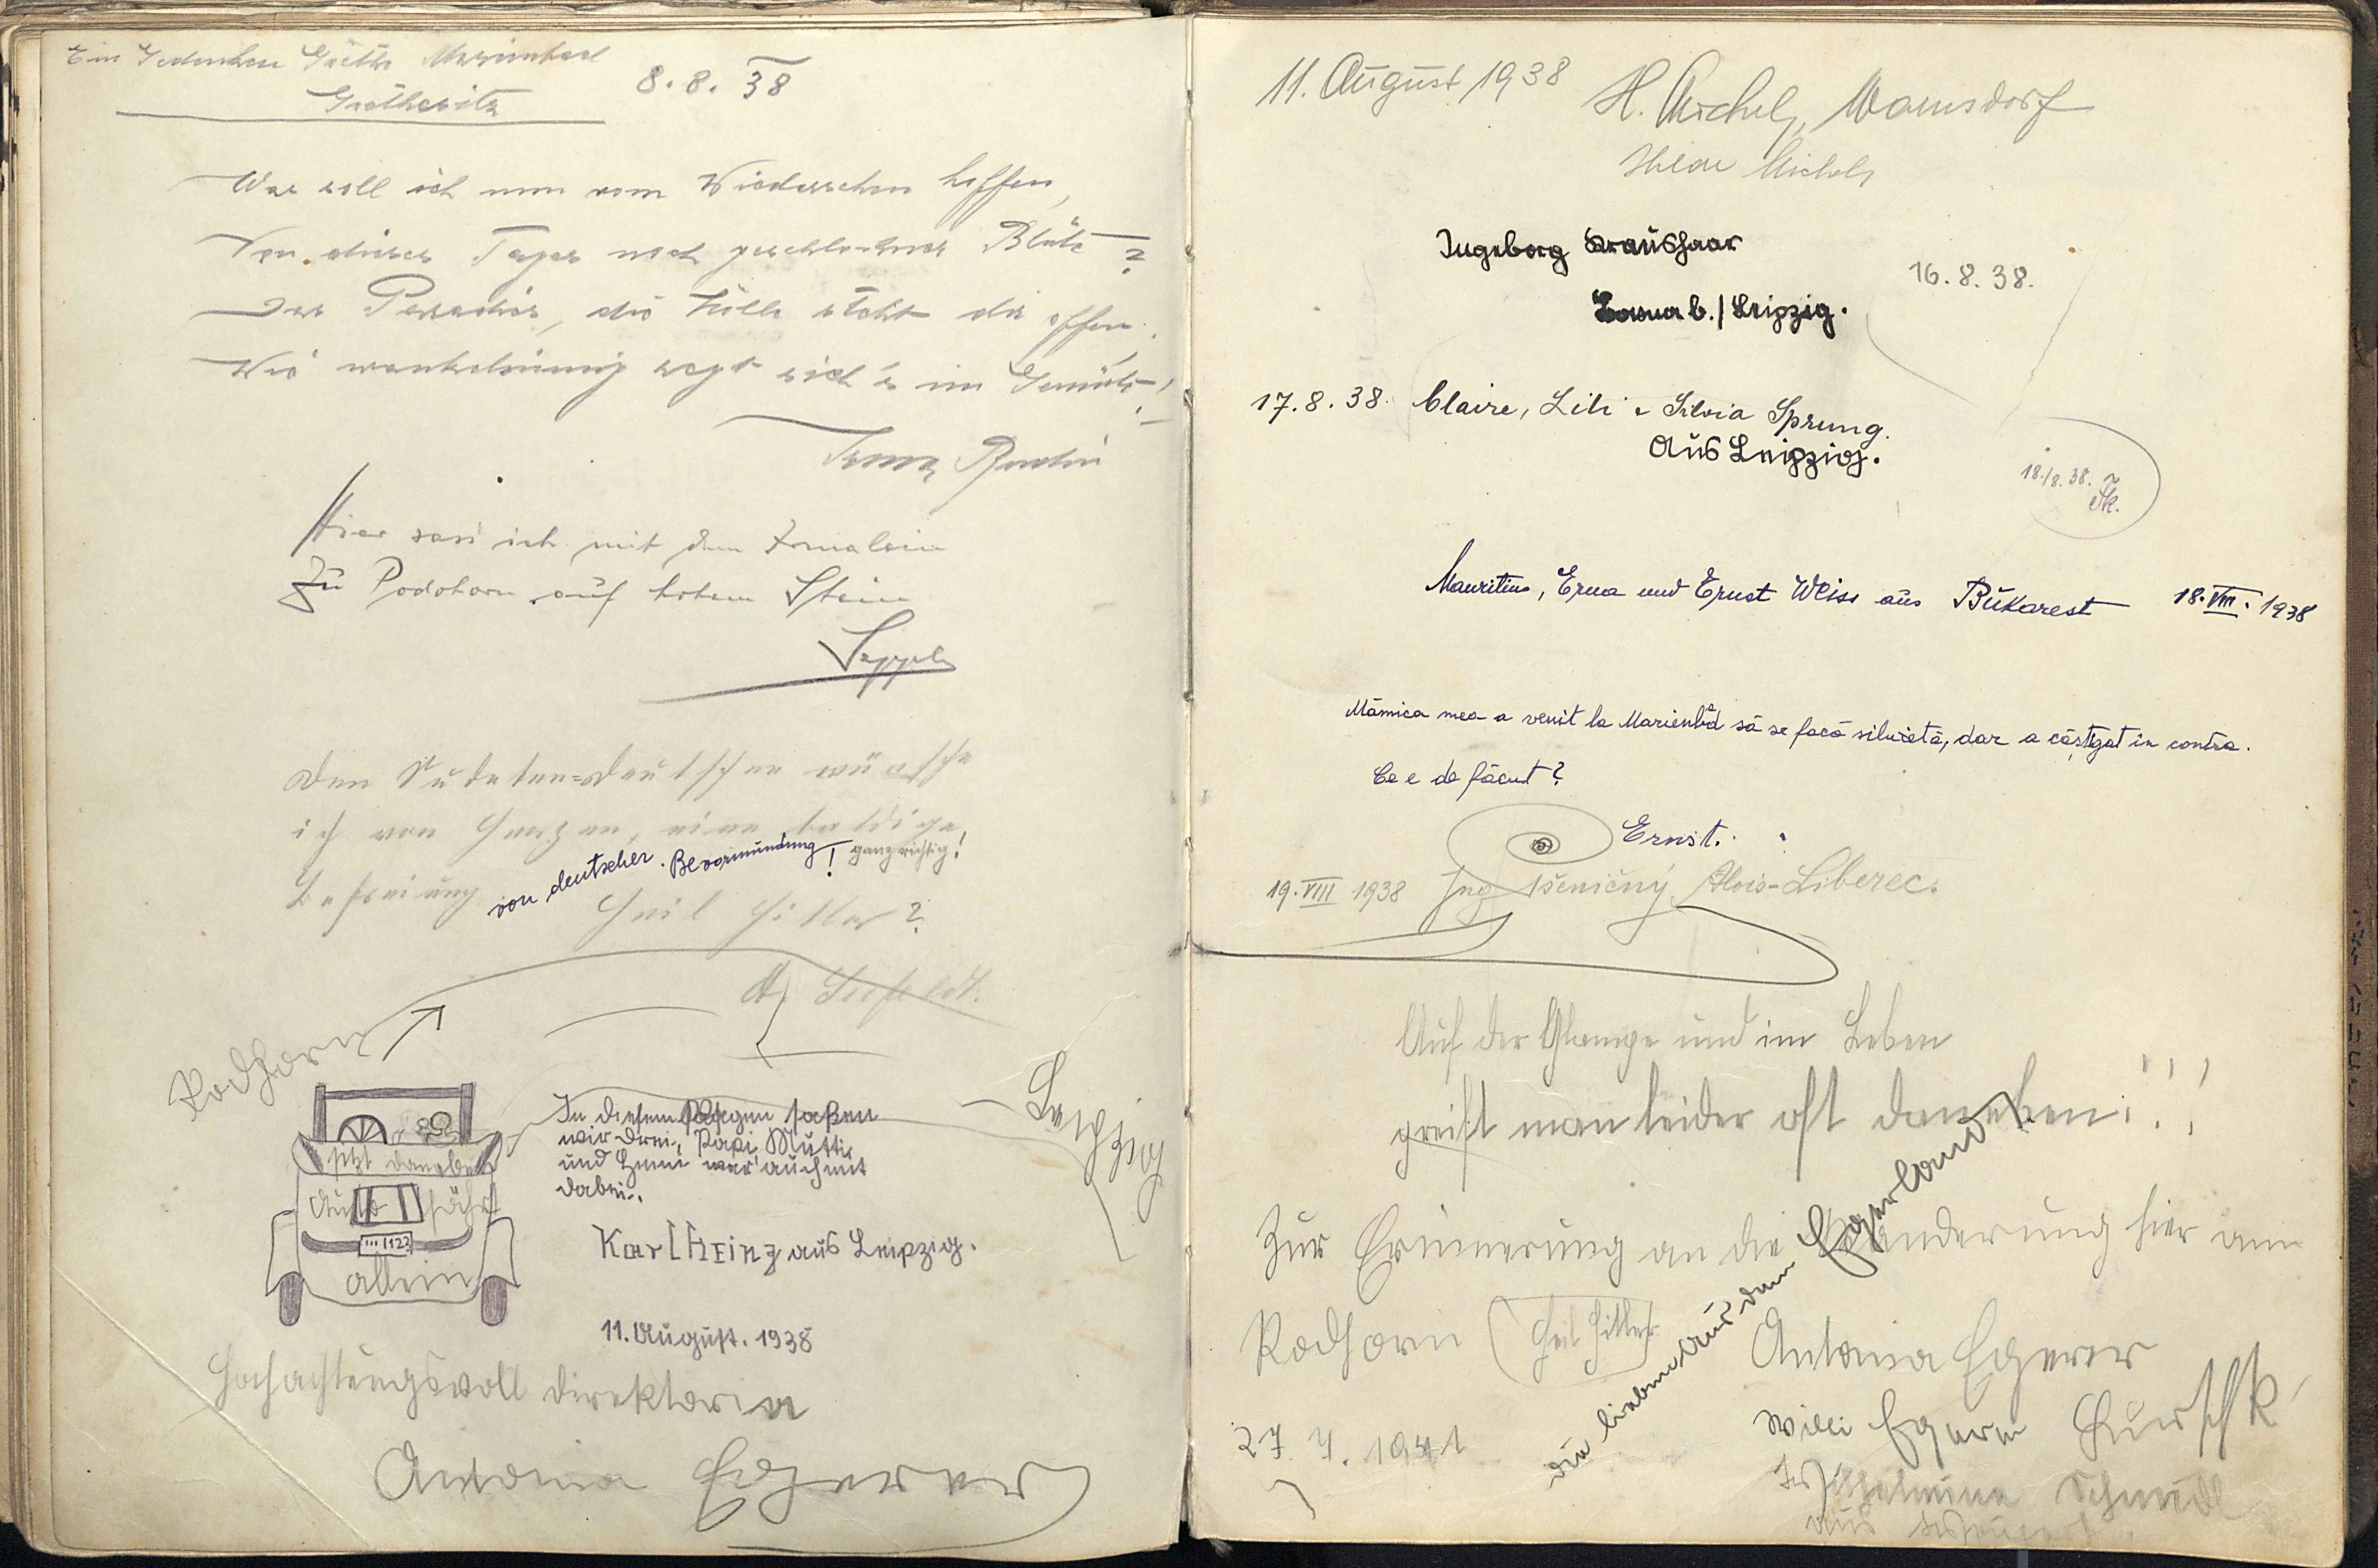 Ein Gedenken Göethe Marienbad
Göethesitz
8.8.38
Was soll ich nun vom Wiedersehen hoffen,
Von dieses Tages noch geschlossner Blüte?
Das Paradies, die Hölle steht dir offen.
Wie wankelsinnig regt sich's im Gemüte!
Hier sass ich mit dem
Zu Podohorn auf hohem Stein
Seppl
Den Sudeten=Deutschen wünsche
ich von Herzen, eine baldige
Befreiung
von deutscher Bevormundung!
ganz richtig!
Heil Hitler?
Podhorn
In diesem Wagen saßen
wir drei, Papi, Mutti
und Heini war auch mit
dabei.
Leipzig
jetzt daneben
Auto fährt
1123
allein
Karl Heinz aus Leipzig.
11. August. 1938
Hochachtungsvoll Direktorin
Antonia Egerer
11. August 1938
H. Michel, Warnsdorf
Hilde Michel
Ingeborg Kraushaar
b./Leipzig.
16.8.38.
17.8.38. Claire, Lili u Silvia Sprung.
Aus Leipzig.
18./8.38.
Mauritius, Erna und Ernst Weiss aus Bukarest 18.VIII.1938
Mămica mea a venit la Marienbad să se facă siluetă, dar a câștigat in contra.
Ce e de făcut?
Ernst.
19.VIII 1938 Ing Pšeničný Alois-Liberec.
Auf der Glampe und im Leben
greift man leider oft daneben!!!
Zur Erinnerung an die Wanderung hier am
Podhorn
Heil Hitler
die lieben aus dem Egerland
Antonia Egerer
Willi Egerer
27. 7. 1941
Schmidl
aus